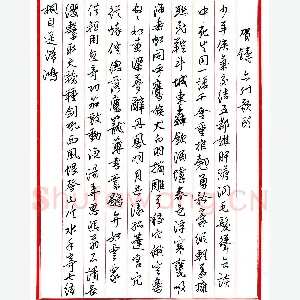 賀鑄六州歌頭
少年俠氣交結五都雄肝膽洞毛髮聳立談
中死生同一諾千金重推翹勇矜豪縱輕蓋擁
聯飛鞚斗城東轟飲酒壚春色浮寒甕吸
海垂虹閒呼鷹嗾犬白羽摘雕弓狡穴俄空樂
匆匆似黃粱夢辭丹鳳明月共漾孤蓬官冗
從懷倥傯落塵籠簿書叢鶡弁如雲眾
供粗用忽奇功笳鼓動漁陽弄思悲翁不請長
纓繫取天驕種劍吼西風恨登山臨水手寄七絃
桐目送歸鴻